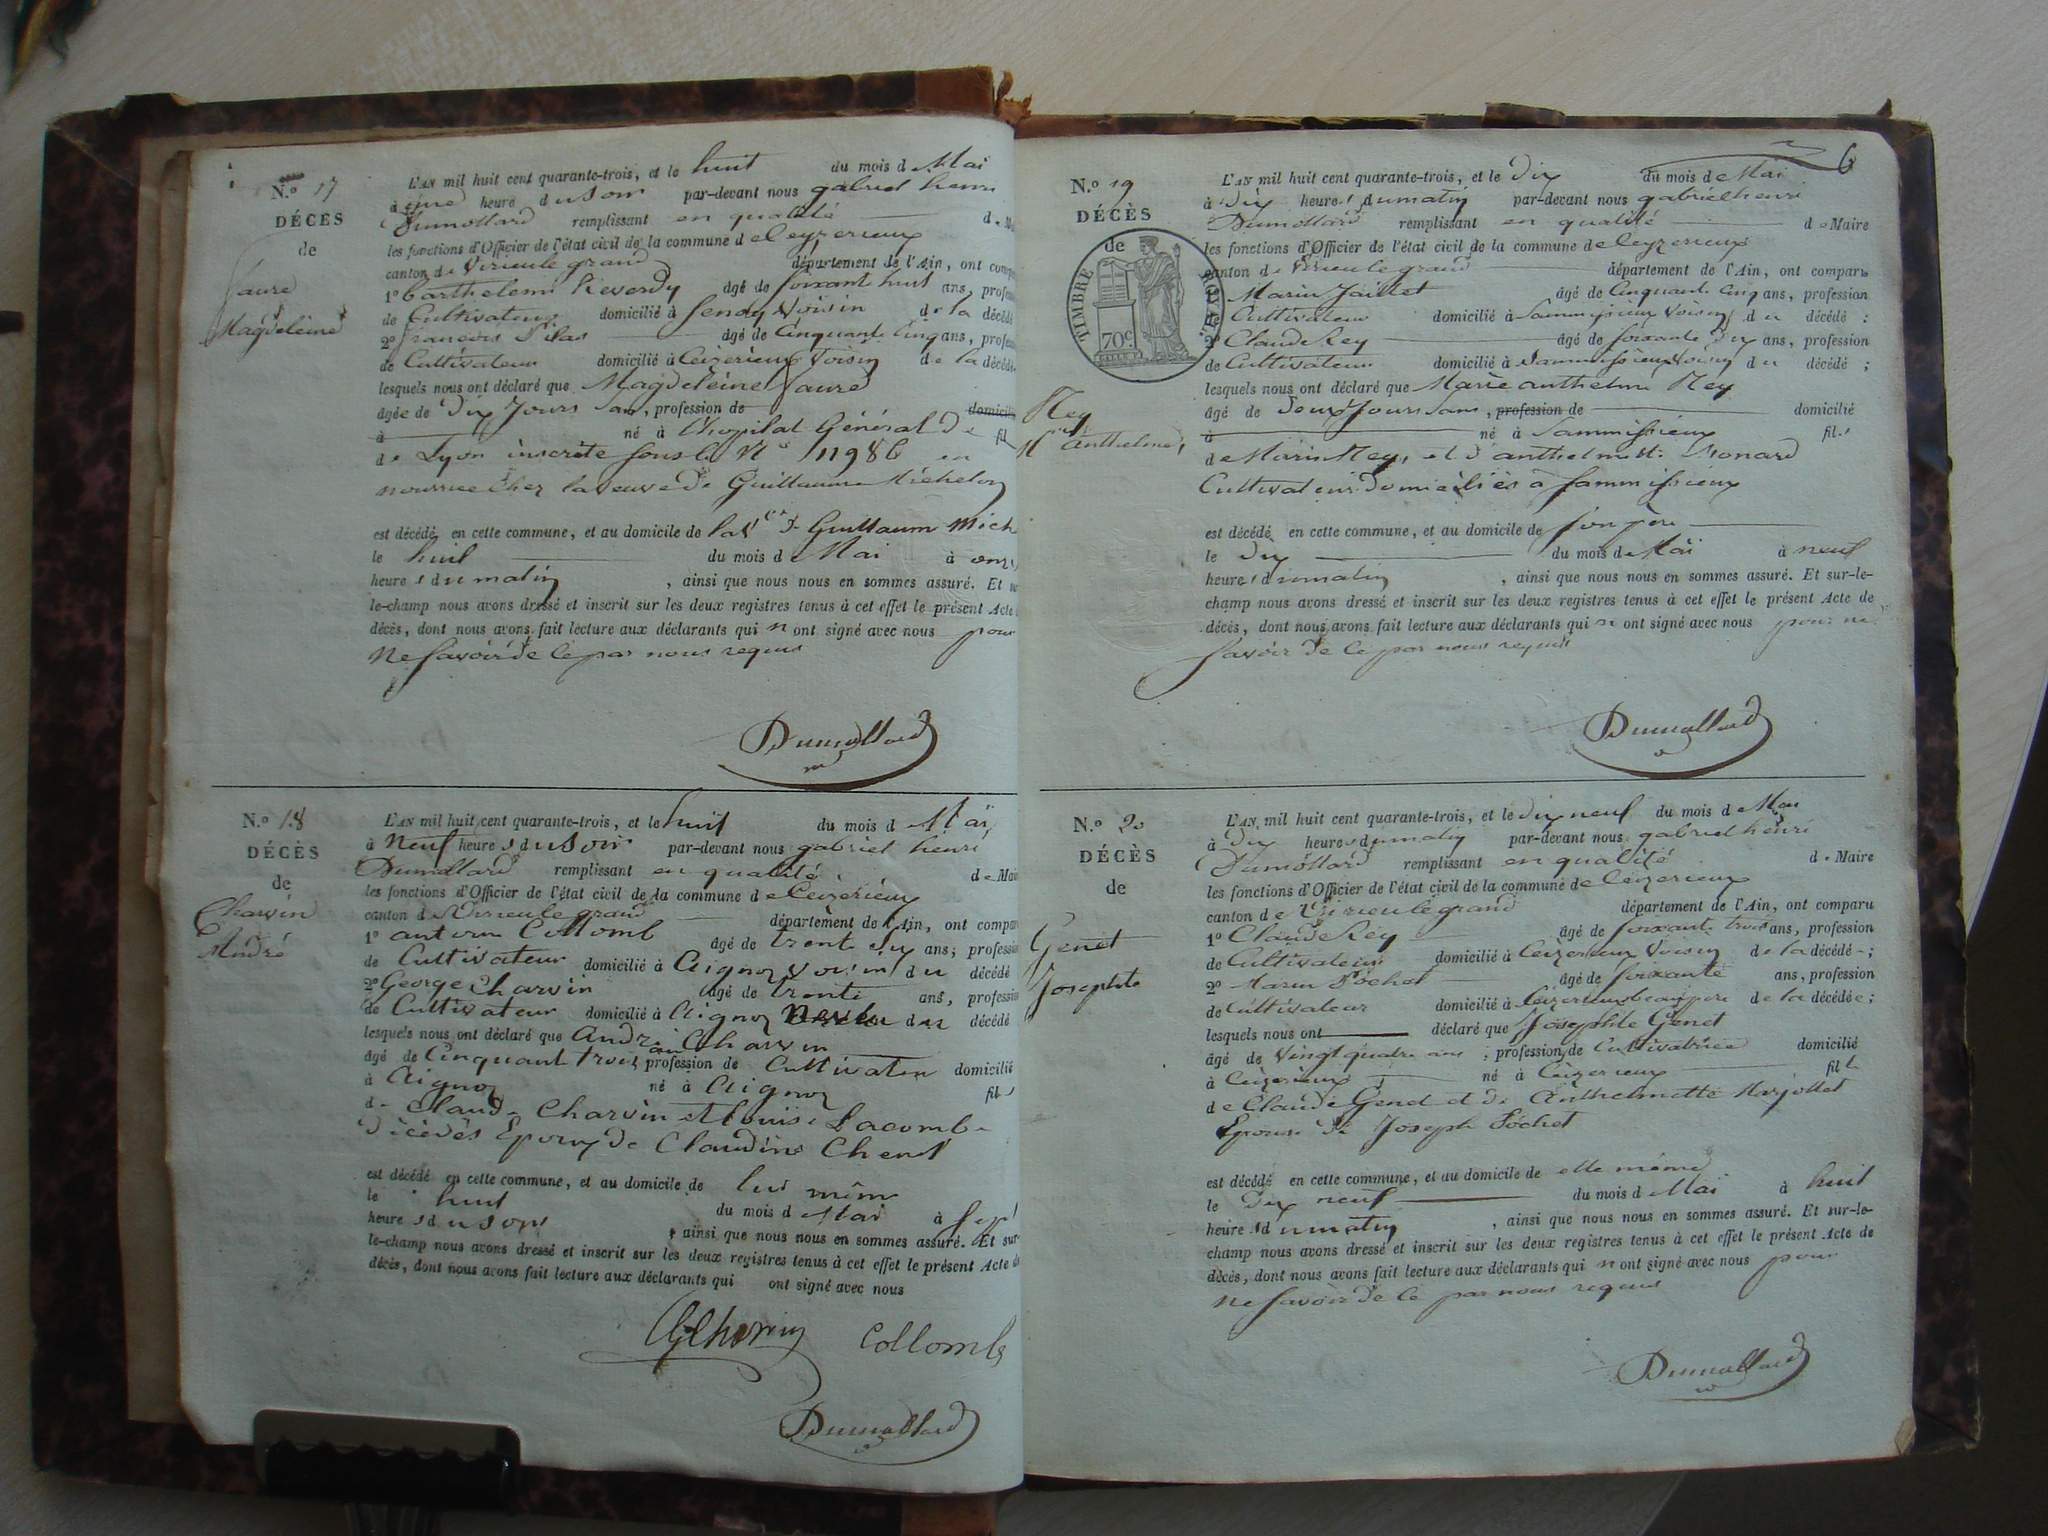 N.o 17
DÉCÈS
de
faure
Magdeleine
L'AN mil huit cent quarante-trois, et le huit du mois d e Mai
à une heure du soir par-devant nous gabriel henri
Dumollard remplissant en qualité d e
les fonctions d'Officier de l'état civil de la commune d e Ceyzerieux
canton de Virieu le grand département de l'Ain, ont
1o barthelemi Reverdy âgé de soixant huit ans,
de Cultivateur domicilié à voisin de la
2o françois Pilas âgé de Cinquant Cinq ans,
de Cultivateur domicilié à Ceizerieux voisin de la
lesquels nous ont déclaré que Magdeleine faure
âgée de Dix Jours San, profession de
à né à l'hopital Général De fil
de Lyon inscrite sous le No 11986 en
nourrice chez la veuve de Guillaume Michelon
est décédé en cette commune, et au domicile de la Vve de Guillaum
le huit du mois de Mai à
heures du matin , ainsi que nous nous en sommes assuré. Et
le-champ nous avons dressé et inscrit sur les deux registres tenus à cet effet le présent Acte
décès, dont nous avons fait lecture aux déclarants qui n ont signé avec nous pour
Ne savoir de ce par nous requis
Dumollard
N.o 18
DÉCÈS
de
Charvin
André
L'AN mil huit cent quarante-trois, et le huit du mois d e Mai
à Neuf heures du Soir par-devant nous gabriel henri
Dumollard remplissant en qualité de
les fonctions d'Officier de l'état civil de la commune d e Ceizerieux
canton d e Virieu le grand département de l'Ain, ont
1o Collomb âgé de trent six ans; profession
de Cultivateur domicilié à Aignoz voisin du décédé
2o George Charvin âgé de trente ans, profession
de Cultivateur domicilié à Aignoz du décédé
lesquels nous ont déclaré que André Charvin
âgé de Cinquant trois ans profession de Cultivateur domicilié
à Aignoz né à Aignoz fils
de Claude Charvin et Louise Lacombe
Décédés Epoux de Claudine
est décédé en cette commune, et au domicile de lui même
le huit du mois d e Mai à Sept
heures du soir , ainsi que nous nous en sommes assuré. Et sur
le-champ nous avons dressé et inscrit sur les deux registres tenus à cet effet le présent Acte de
décès, dont nous avons fait lecture aux déclarants qui ont signé avec nous
Collomb
Dumollard
6
N.o 19
DÉCÈS
de
TIMBRE ROYAL
70c.
Rey
Anthelme
L'AN mil huit cent quarante-trois, et le Dix du mois de Mai
à Dix heures du matin par-devant nous gabriel henri
Dumollard remplissant en qualité d e Maire
les fonctions d'Officier de l'état civil de la commune d e Ceyzerieux
canton de Virieu le grand département de l'Ain, ont comparu
Marin Jaillet âgé de Cinquant cinq ans, profession
Cultivateur domicilié à Sammissieux voisin du décédé ;
2o Claude Rey âgé de soixante Dix ans, profession
de Cultivateur domicilié à Sammissieux voisin du décédé ;
lesquels nous ont déclaré que Marie anthelme Rey
âgé de Deux Jours Sans, profession de domicilié
à né à Sammissieux fils
de Marin Rey, et d'anthelmette
Cultivateurs domiciliés à Sammissieux
est décédé en cette commune, et au domicile de son père
le Dix du mois de Mai à neuf
heures du matin , ainsi que nous nous en sommes assuré. Et sur-le-
champ nous avons dressé et inscrit sur les deux registres tenus à cet effet le présent Acte de
décès, dont nous avons fait lecture aux déclarants qui n ont signé avec nous pour ne
savoir de ce par nous requis
Dumollard
N.o 20
DÉCÈS
de
Genet
Josephte
L'AN mil huit cent quarante-trois, et le dix neuf du mois d e Mai
à Dix heures du matin par-devant nous gabriel henri
Dumollard remplissant en qualité d e Maire
les fonctions d'Officier de l'état civil de la commune de Ceizerieux
canton d e Virieu le grand département de l'Ain, ont comparu
1o Claude Rey âgé de soixante trois ans, profession
de Cultivateur domicilié à Ceizerieux voisin de la décédée ;
2o Marin Pochet âgé de soixante ans, profession
de Cultivateur domicilié à Ceizerieux beau père de la décédée ;
lesquels nous ont déclaré que Josephte Genet
âgé de vingt quatre ans ; profession de Cultivatrice domicilié
à Ceizerieux né à Ceizerieux fille
de Claude Genet et de Anthelmette Marjollet
Epouse de Joseph Pochet
est décédé en cette commune, et au domicile de elle même
le Dix neuf du mois d e Mai à huit
heures du matin , ainsi que nous nous en sommes assuré. Et sur-le-
champ nous avons dressé et inscrit sur les deux registres tenus à cet effet le présent Acte de
décès, dont nous avons fait lecture aux déclarants qui n ont signé avec nous pour
Ne savoir de ce par nous requis
Dumollard